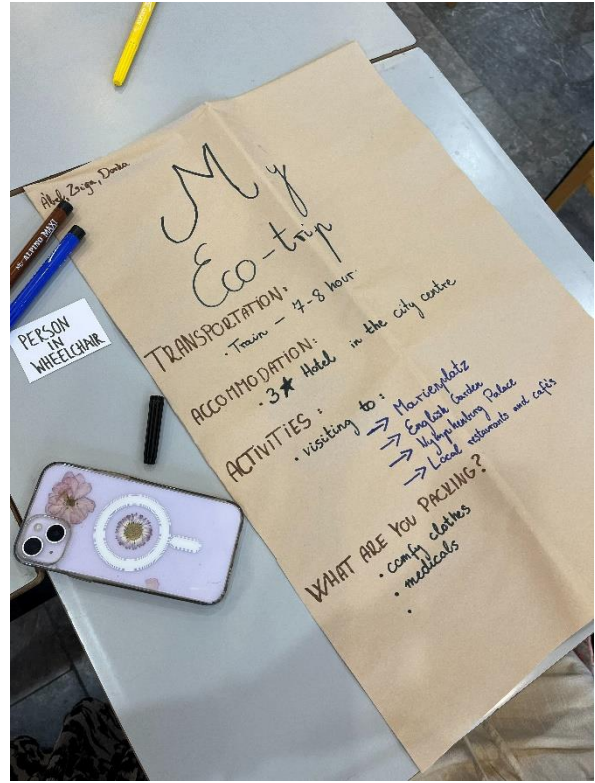 Ábel, Zsiga, Dorka
My
Eco-trip
TRANSPORTATION:
· Train – 7-8 hour.
ACCOMMODATION:
· 3★ Hotel in the city centre
ACTIVITIES:
· visiting to:
→ Marienplatz
→ English Garden
→ Nymphenburg Palace
→ Local restaurants and cafés
WHAT ARE YOU PACKING?
· comfy clothes
· medicals
·
ALPINO MAXI
PERSON
IN
WHEELCHAIR